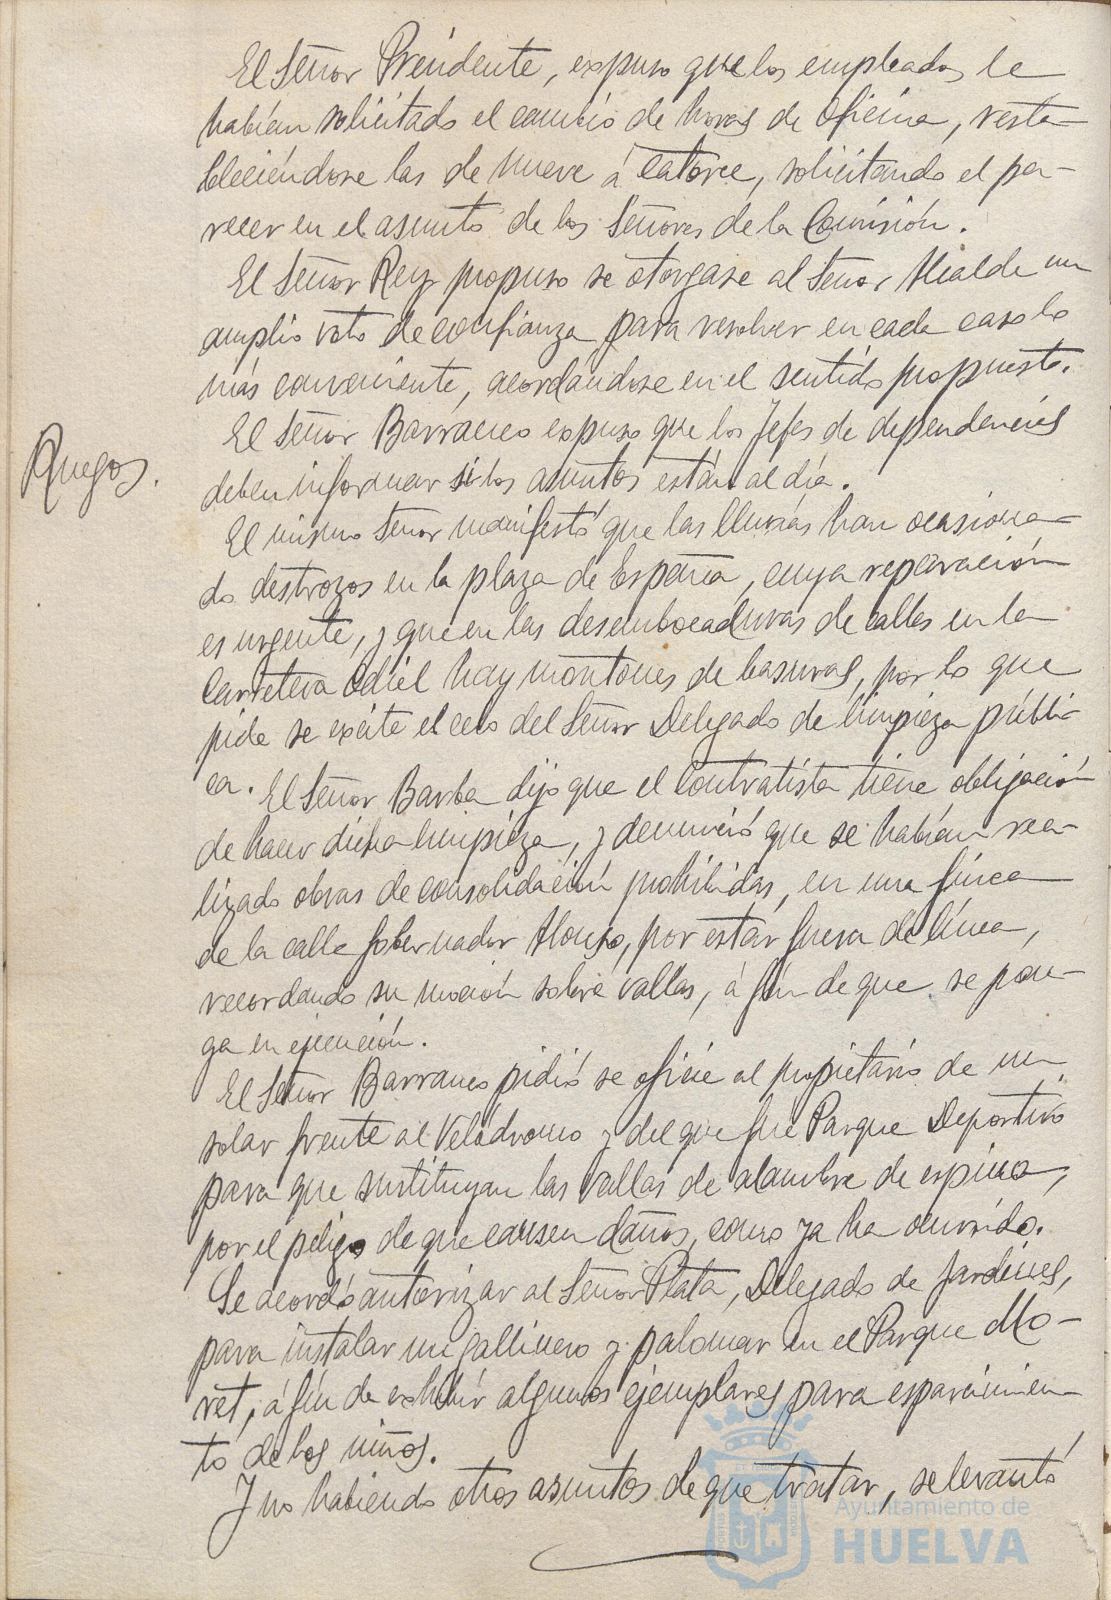 El Señor Presidente, expuso que los empleados le
habían solicitado el cambio de horas de oficina, resta-
bleciéndose las de nueve á catorce, solicitando el pa-
recer en el asunto de los Señores de la Comisión.
El Señor Rey propuso se otorgase al Señor Alcalde un
amplio voto de confianza para resolver en cada caso lo
más conveniente, acordándose en el sentido propuesto.
El Señor Barranco expuso que los Jefes de dependencias
Ruegos.
deben informar si los asuntos están al día.
El mismo Señor manifestó que las lluvias han ocasiona-
do destrozos en la plaza de España, cuya reparación
es urgente, y que en las desembocaduras de calles en la
Carretera Odiel hay montones de basuras, por lo que
pide se excite el celo del Señor Delegado de limpieza públi-
ca. El Señor Barba dijo que el Contratista tiene obligación
de hacer dicha limpieza, y denunció que se habían rea-
lizado obras de consolidación prohibidas, en una finca
de la calle Gobernador Alonso, por estar fuera de línea,
recordando su moción sobre vallas, á fin de que se pon-
ga en ejecución.
El Señor Barranco pidió se oficie al propietario de un
solar frente al Velódromo y del que fué Parque Deportivo
para que sustituyan las vallas de alambre de espino,
por el peligro de que causen daños, como ya ha ocurrido.
Se acordó autorizar al Señor Plata, Delegado de Jardines,
para instalar un gallinero y palomar en el Parque Mo-
ret, á fin de exhibir algunos ejemplares para esparcimien-
to de los niños.
Y no habiendo otros asuntos de que tratar, se levantó
Ayuntamiento de
HUELVA